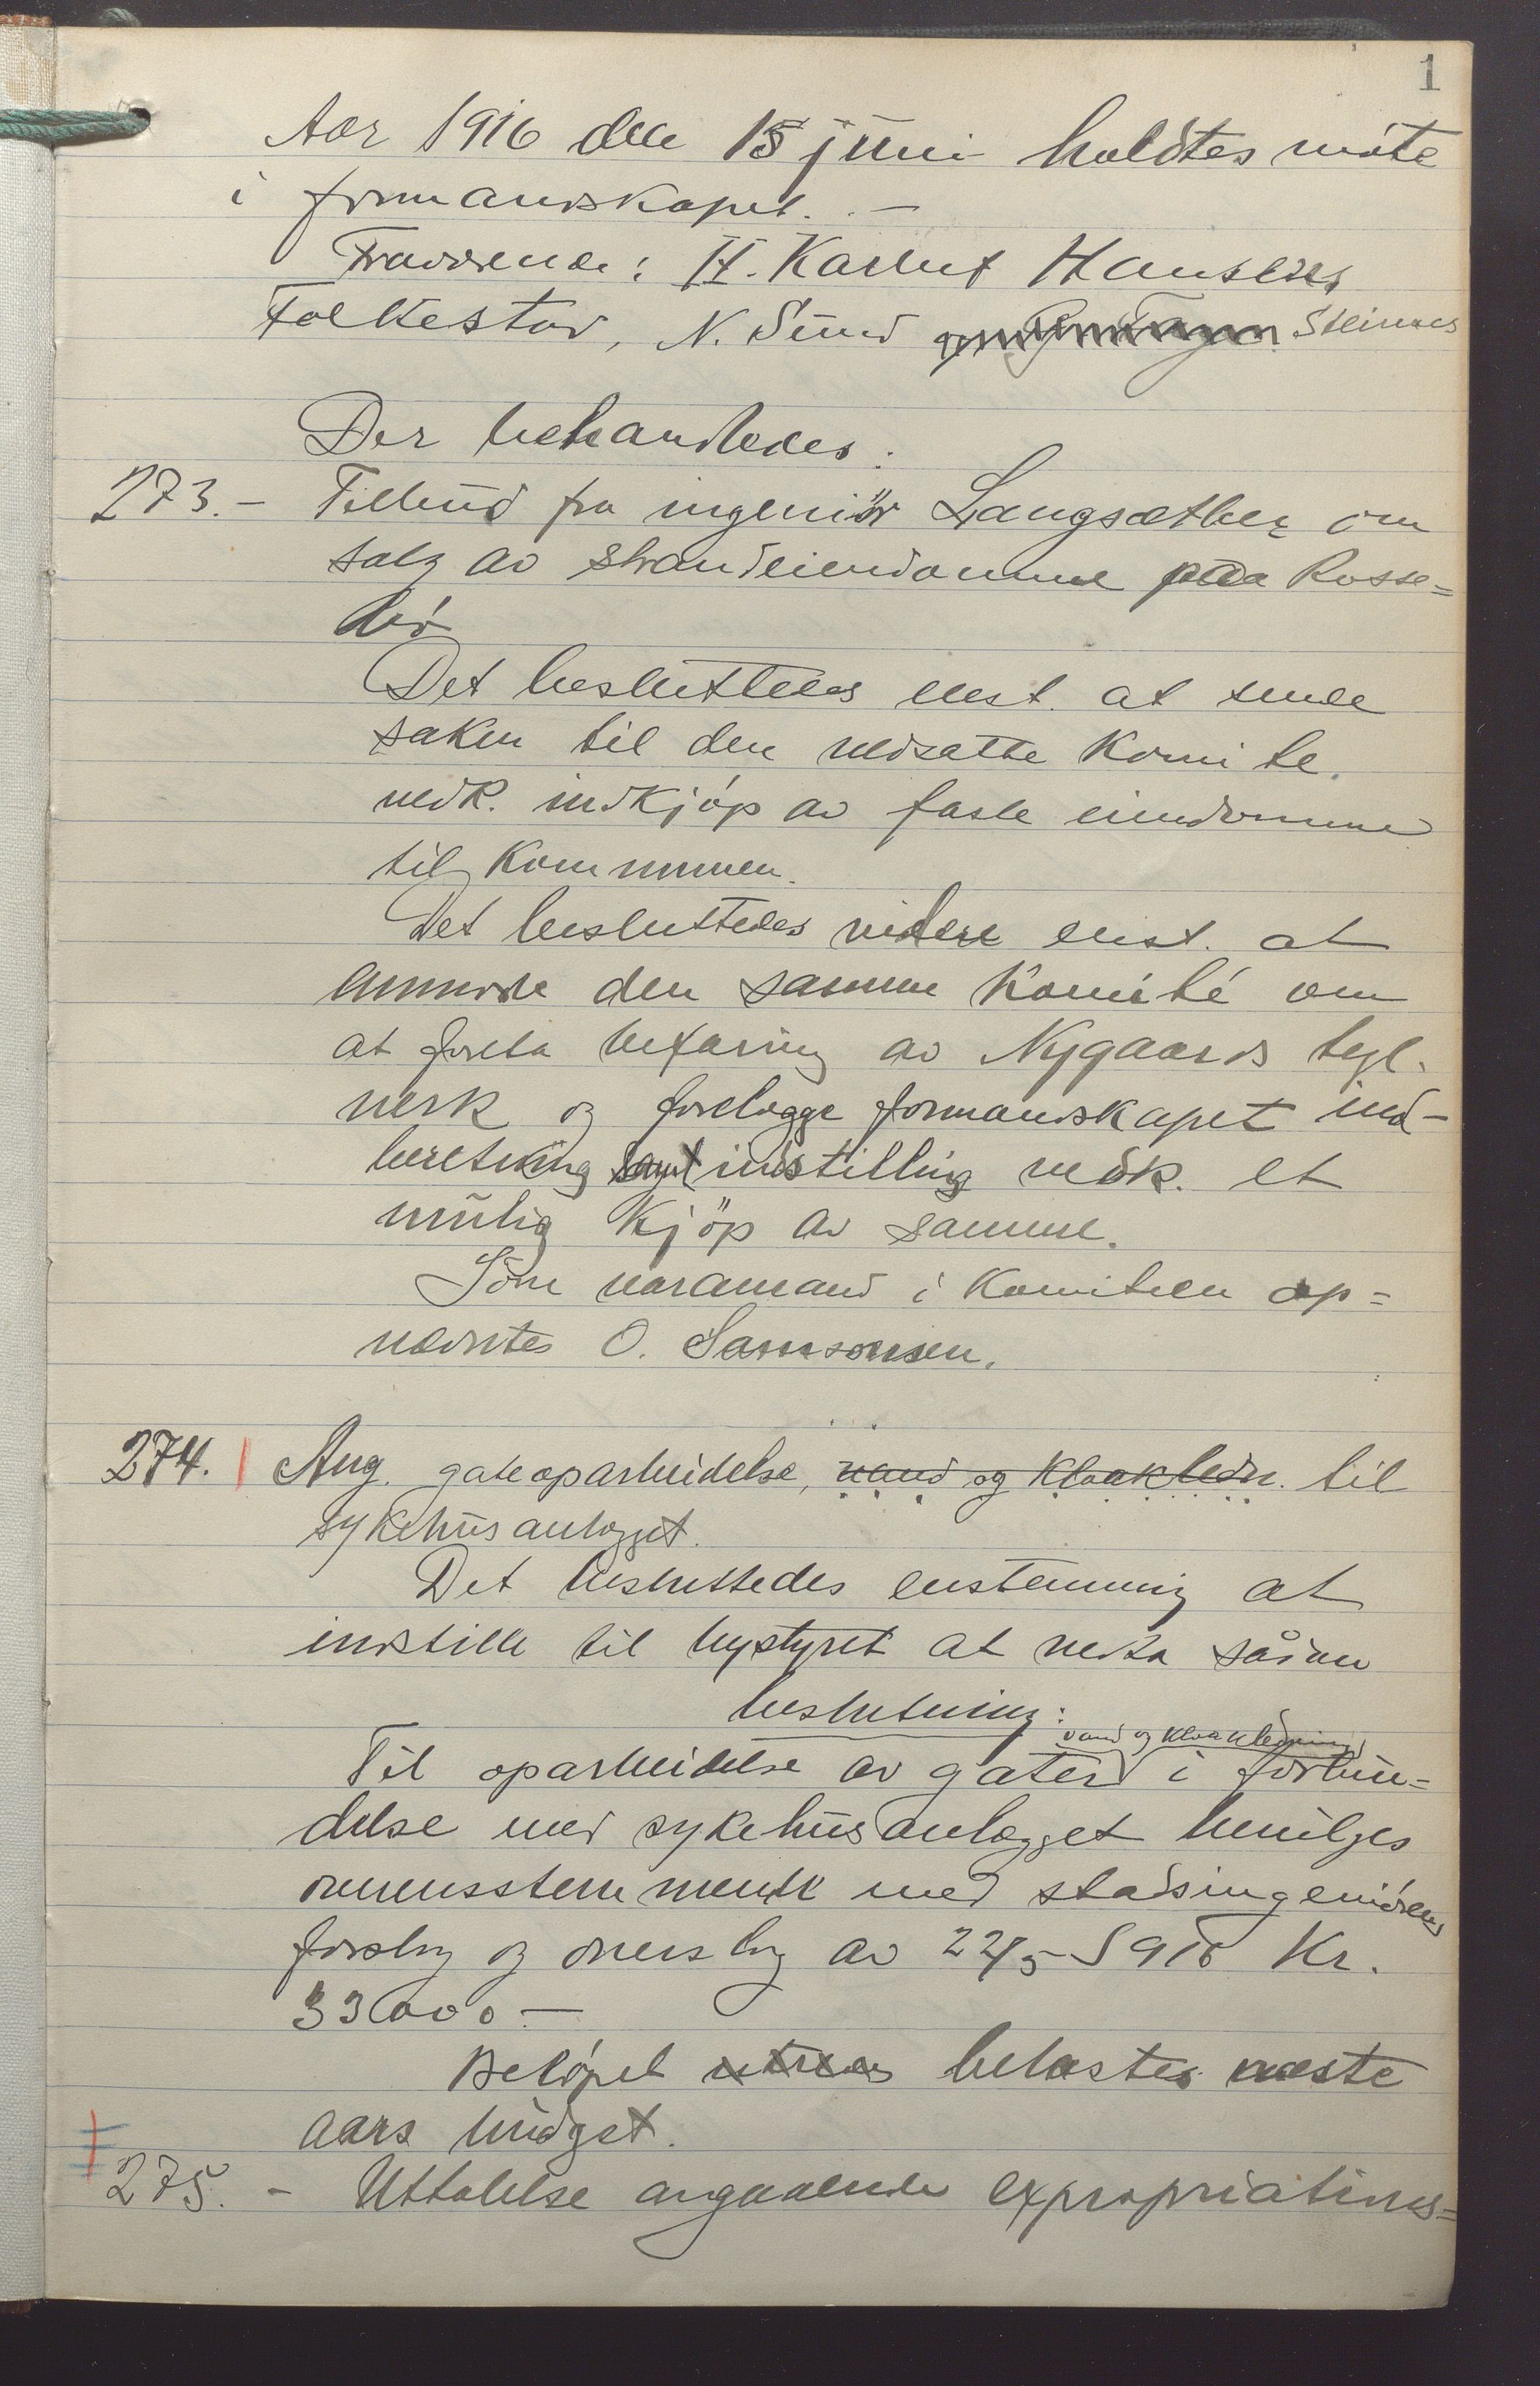 1
Aar 1916 den 15 juni holdtes möte
i formandskapet. —
Fraværende: H. Karluf Hanssen,
Folkestad, N. Sund Steinnes
Der behandledes:
273. – Tilbud fra ingeniör Langsæther om
salg av strandeiendomme paa Rosse=
Det besluttedes enst. at sende
saken til den nedsatte Komite
vedk. indkjöp av faste eiendomme
til Kommunen.
Det besluttedes videre enst. at
anmode den samme Komité om
at foreta befaring av Nygaards tegl-
verk og forelægge formandskapet ind-
beretning samt indstilling vedk. et
mulig Kjöp av samme.
Som varamand i Komiteen op=
nævntes O. Samsonsen.
274. Ang. gateoparbeidelse, vand og Kloakledn. til
sykehusanlægget.
Det besluttedes enstemmig at
indstille til bystyret at vedta sådan
beslutning:
vand og Kloakledning
Til oparbeidelse av gater i forbin=
delse med sykehusanlægget bevilges
overensstemmende med stadsingeniörens
forslag og overslag av 22/5 1916 Kr.
33000 —
Belöpet belastes næste
aars budget.
275. – Uttalelse angaaende expropriations=